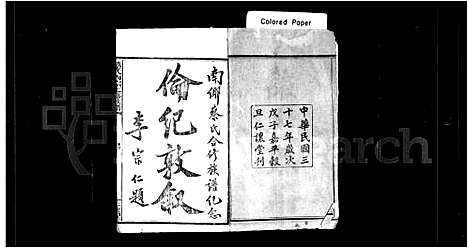 Colored Paper
南鄉蔡氏合修族譜紀念
倫紀敦敘
李宗仁題
中華民國三
十七年歲次
戊子嘉平穀
旦仁課堂刊